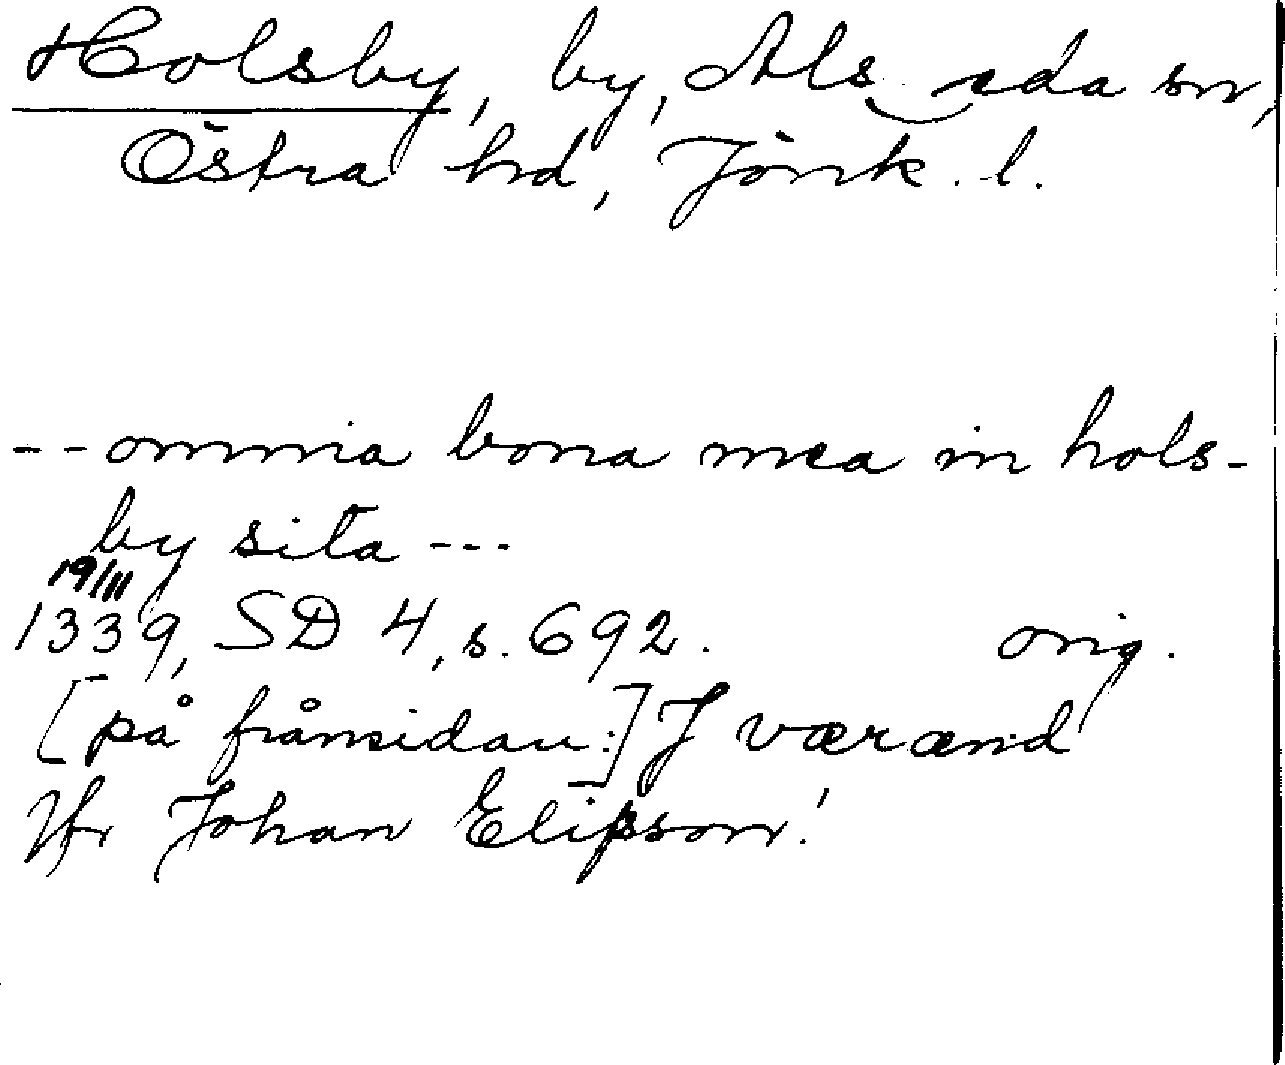 Holsby, by, Als eda sn,
Östra hd, Jönk. l.
-- omnia bona mea in hols-
by sita ---
19/11
1339, SD 4, s. 692. orig.
[på frånsidan:] J værænd
Hr Johan Elipson!